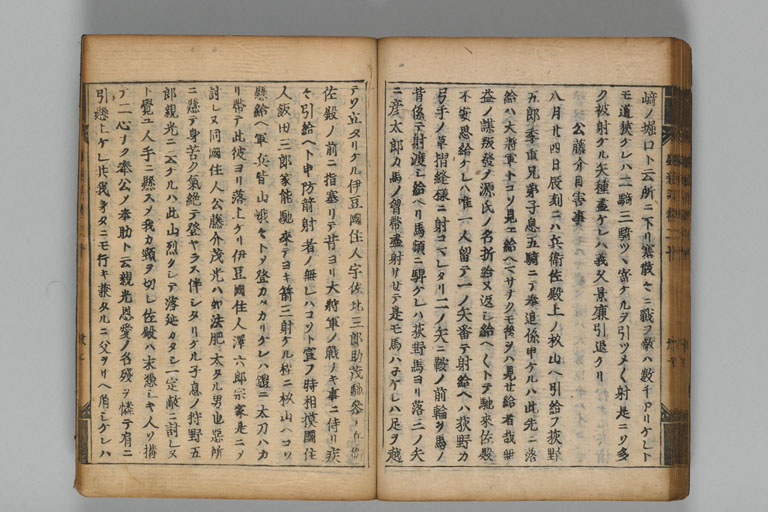 﨑ノ堀口ト云所ニ下リ塞散々ニ戰ヲ擊ハ數千アリケレト
モ道狹ケレハ二騎三騎ツヽ寄ケルヲ引ツメ〱射是ニソ多
ク被射ケル矢種盡ケレハ義父景廉引退クリ
公藤介自害事
八月廿四日辰刻ニハ兵衛佐殿上ノ杦山ヘ引給フ荻野
五郎季重兄弟子息五騎ニテ奉追係申ケルハ此先ニ落
給ハ大將軍トコソ見エ給ヘマサナクモ後ヲハ見せ給者哉無
益ノ謀叛發ノ源氏ノ名折給又返シ給ヘ〱トテ馳來佐殿
不安思給ケレハ唯一人留テ一ノ矢番テ射給ヘハ荻野カ
弓手ノ草摺縫樣ニ射コマレタリ二ノ矢ニ鞍ノ前輪ヲ馬ノ
背係テ射渡シ給ヘリ馬頻ニ騨ケレハ荻野馬ヨリ落三ノ矢
ニ彦太郎カ馬ノ胷帶盡射サせテ是モ馬ハ子ケレハ足ヲ越
テソ立タリケル伊豆國住人宇佐比三郎助茂馳參ノ兵衛
佐殿ノ前ニ指塞リテ昔ヨリ大將軍ノ戰ノキ事ニ侍リ疾
々引給ヘト申防箭射者ノ無レハコソト宣フ時相摸國住
人飯田三郎家能馳來テヨキ箭三射ケル程ニ杦山ヘコソ
懸給ヘ軍兵皆山峨々トソ登カハカリケレハ鎧ニ太刀ハカ
リ帶テ此彼ヨリ落上ケリ伊豆國住人澤六郎宗家是ニソ
討レヌ同國住人公藤介茂光ハ如法肥太タル男也惡所
ニ懸テ身苦ク氣絶テ登ヤラス伴シタリケル子息ノ狩野五
郎親光ニ云ケルハ此山烈クシテ落延カタシ一定敵ニ討レヌ
ト覺ユ人手ニ懸スソ我カ頸ヲ切レ佐殿ハ末憑シキ人ソ搆
テ二心ナク奉公ノ奉助ト云親光恩愛ノ名殘ヲ憐テ肩ニ
引懸上ケレ共我身タニモ行キ兼タルニ父ヲサヘ角シケレハ